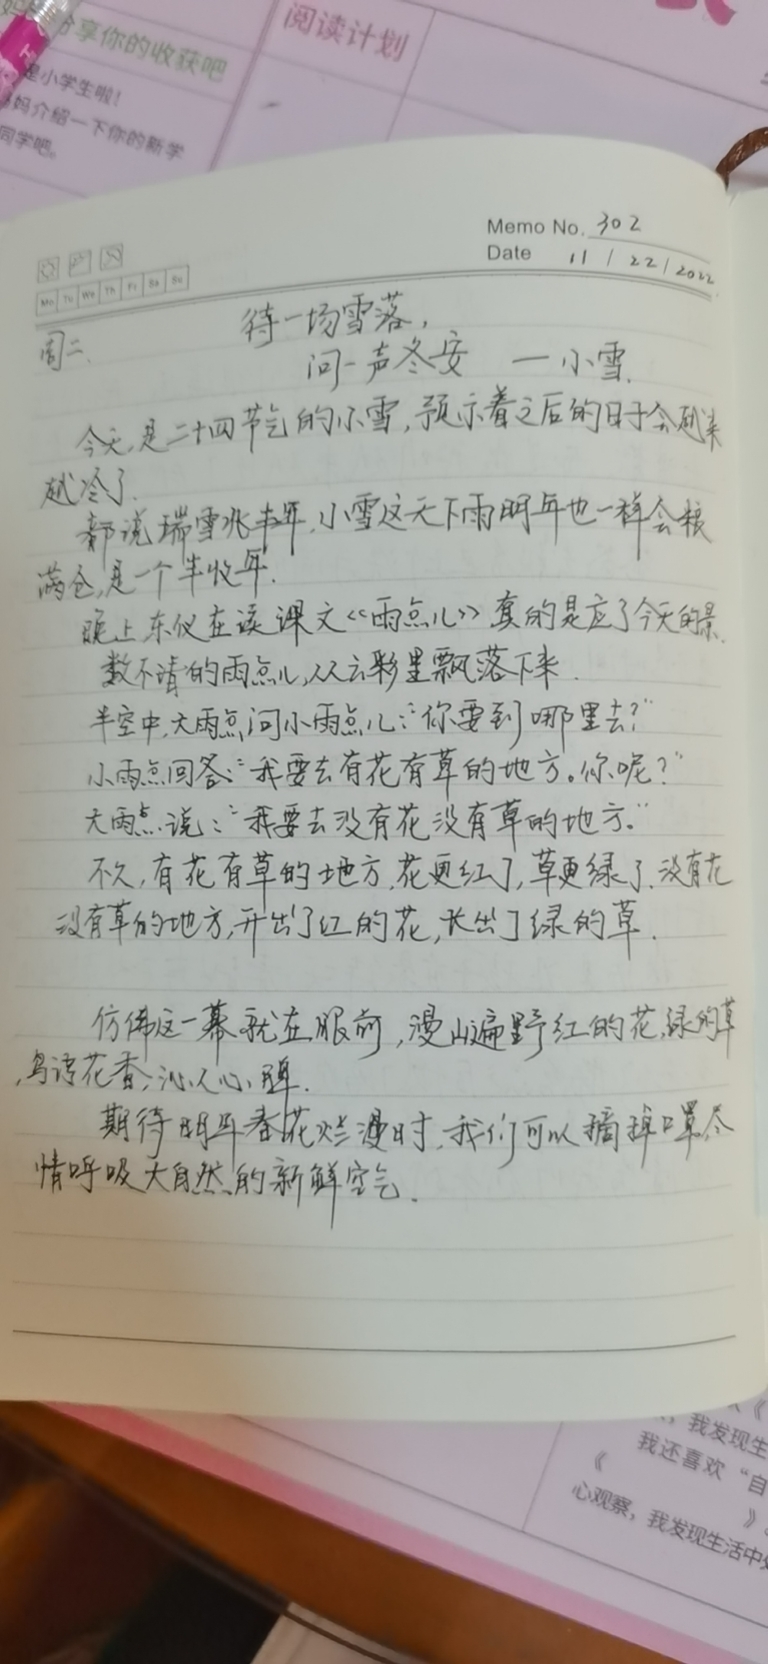 享你的收获吧
阅读计划
是小学生啦！
妈介绍一下你的新学
同学吧。
Memo No. 302
Date 11/22/2022
Mo Tu We Th Fr Sa Su
周二.
待一场雪落，
问一声冬安 — 小雪.
今天,是二十四节气的小雪,预示着之后的日子会越来
越冷了.
都说瑞雪兆丰年,小雪这天下雨明年也一样会粮
满仓,是一个丰收年.
晚上东仪在读课文《雨点儿》真的是应了今天的景.
数不清的雨点儿,从云彩里飘落下来.
半空中,大雨点问小雨点儿:“你要到哪里去?”
小雨点回答:“我要去有花有草的地方。你呢?”
大雨点说:“我要去没有花没有草的地方.”
不久,有花有草的地方,花更红了,草更绿了.没有花
没有草的地方,开出了红的花,长出了绿的草.
仿佛这一幕就在眼前,漫山遍野红的花,绿的草
,鸟语花香,沁人心脾.
期待明年春花烂漫时,我们可以摘掉口罩尽
情呼吸大自然的新鲜空气.
，我发现生
我还喜欢“自
《
》
心观察，我发现生活中处